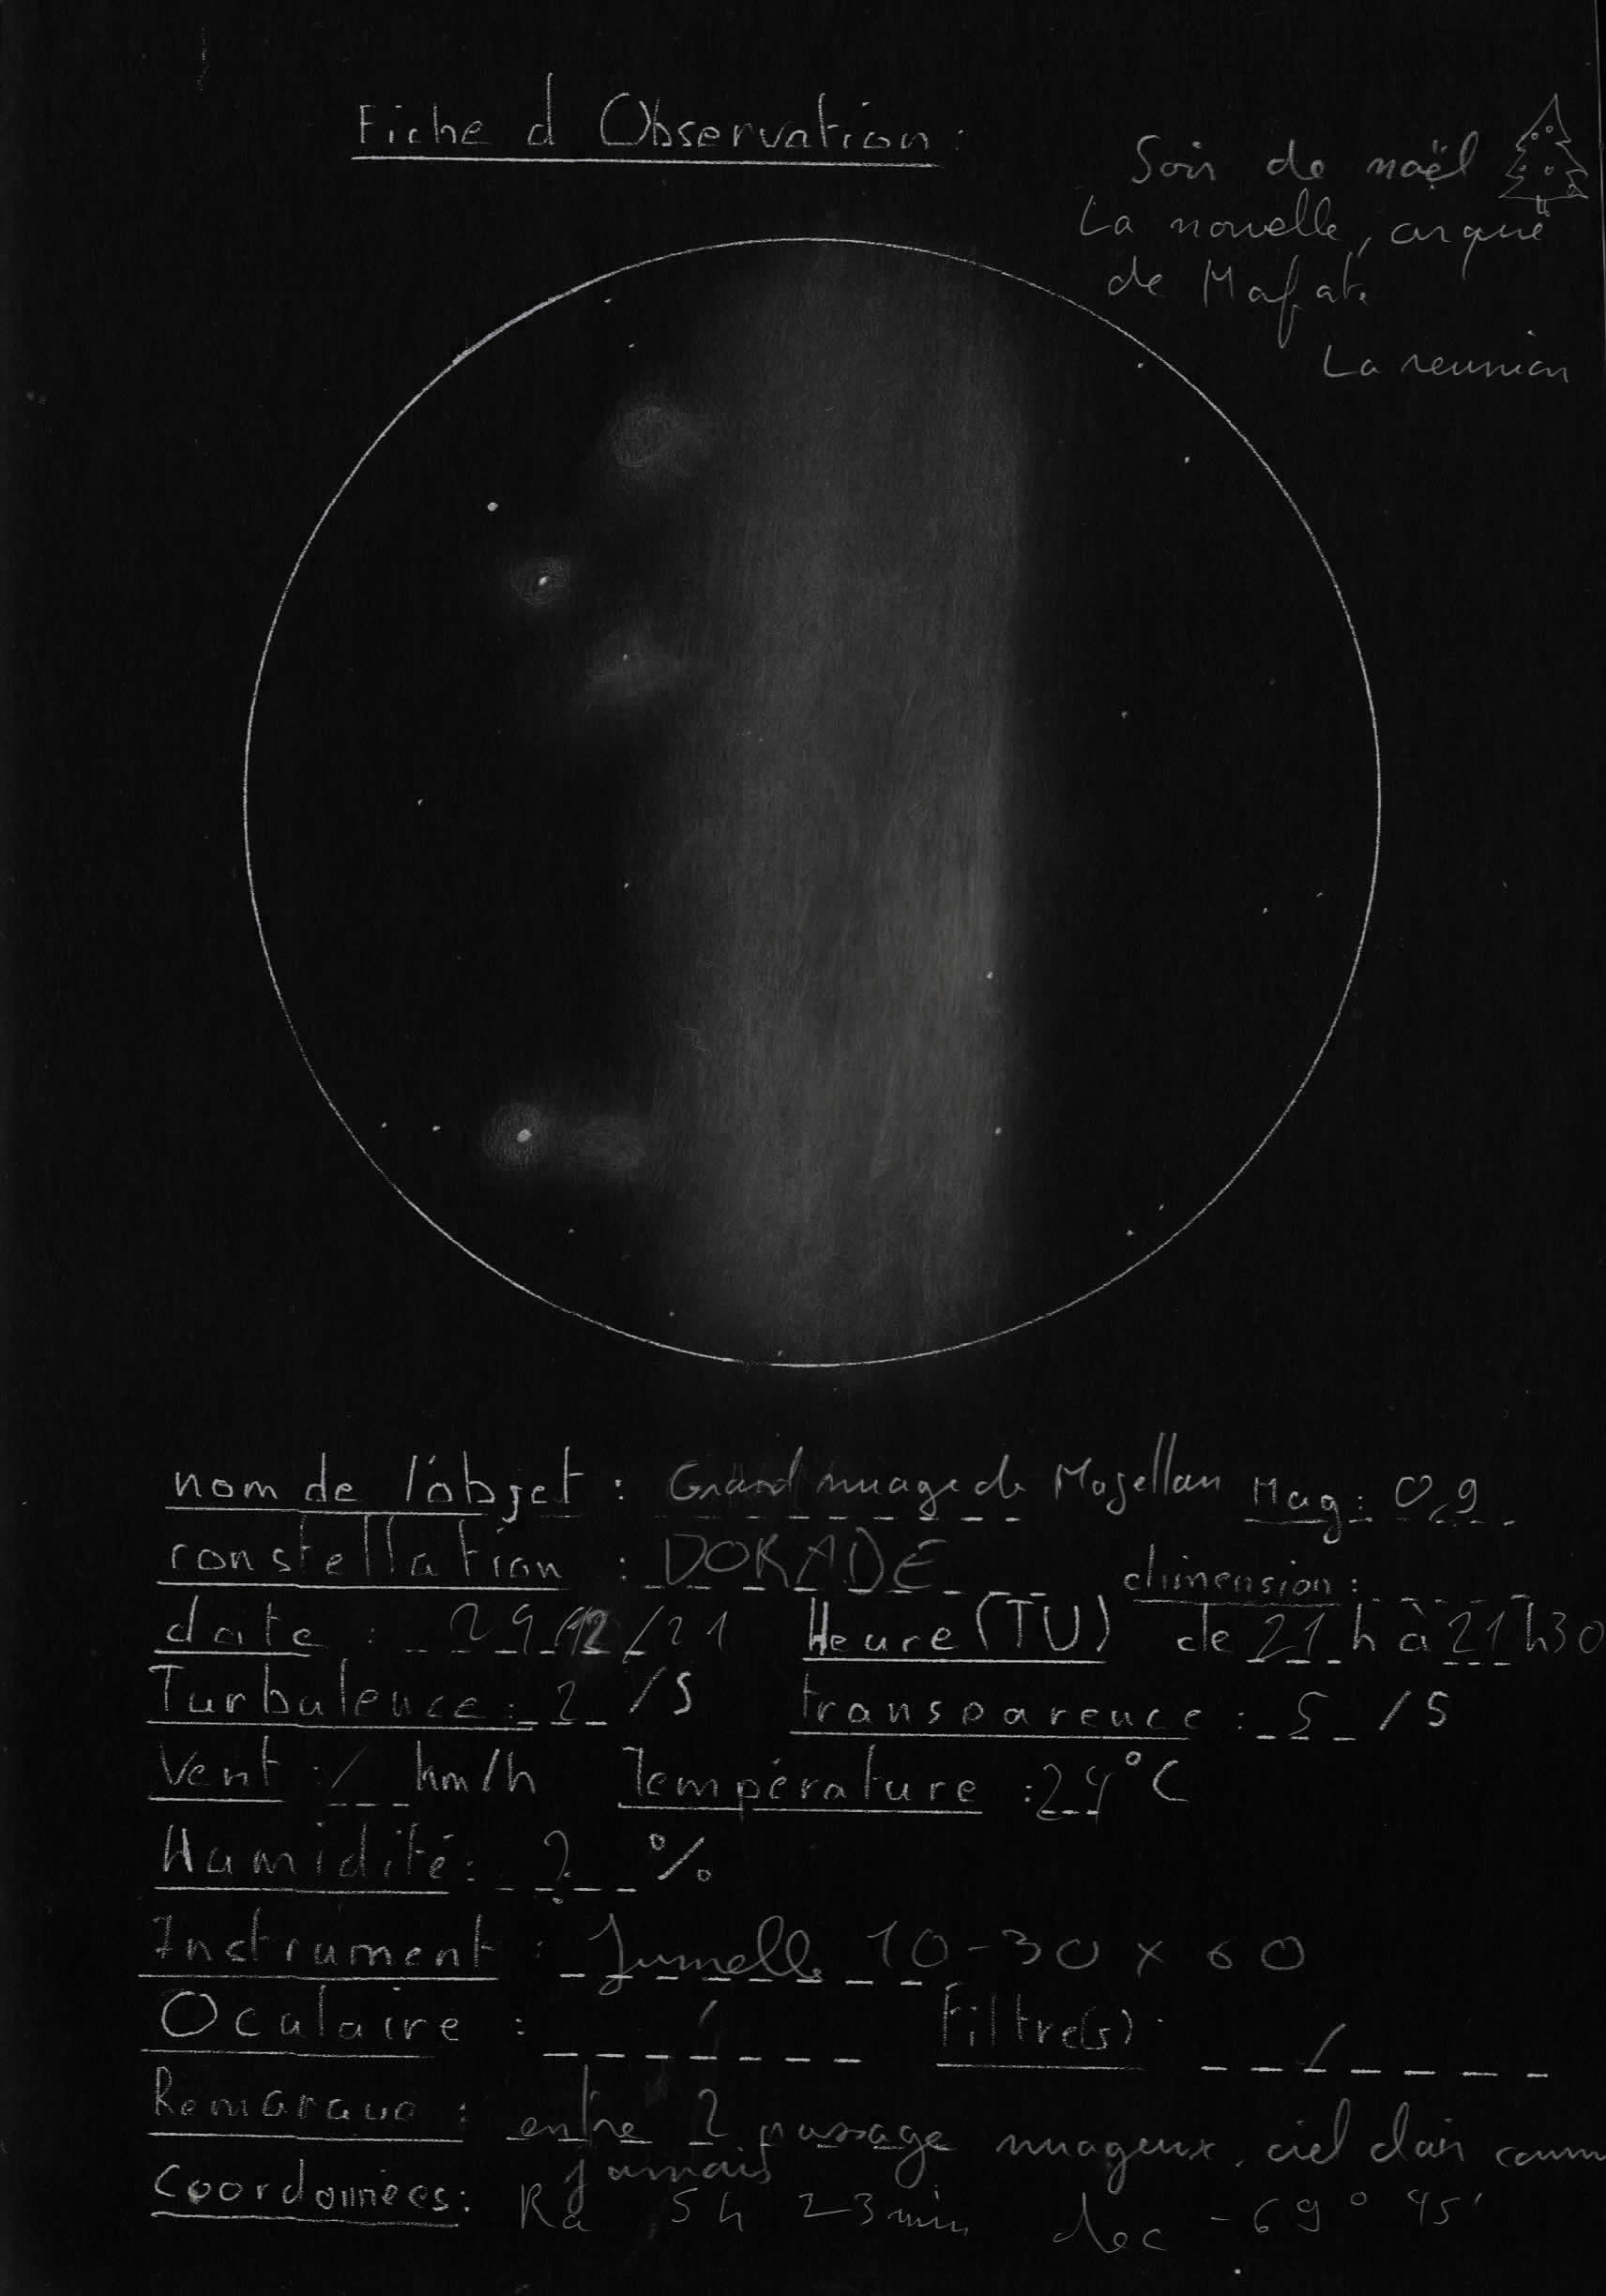 Fiche d Observation :
Soir de noël
La nouvelle, cirque
de Mafate
La reunion
nom de l'objet : Grand nuage de Magellan Mag : 0,9
constellation : DORADE dimension :
date : 24/12/21 Heure (TU) de 21 h à 21 h30
Turbulence : 2 /5 transparence : 5 /5
Vent : / km/h Température : 24°C
Humidité : ? %
Instrument : Jumelle 10-30 x 60
Oculaire : / Filtre(s) : /
Remarque : entre 2 passage nuageux, ciel clair comm
jamais
Coordonnées : Ra 5h 23min dec -69° 45'